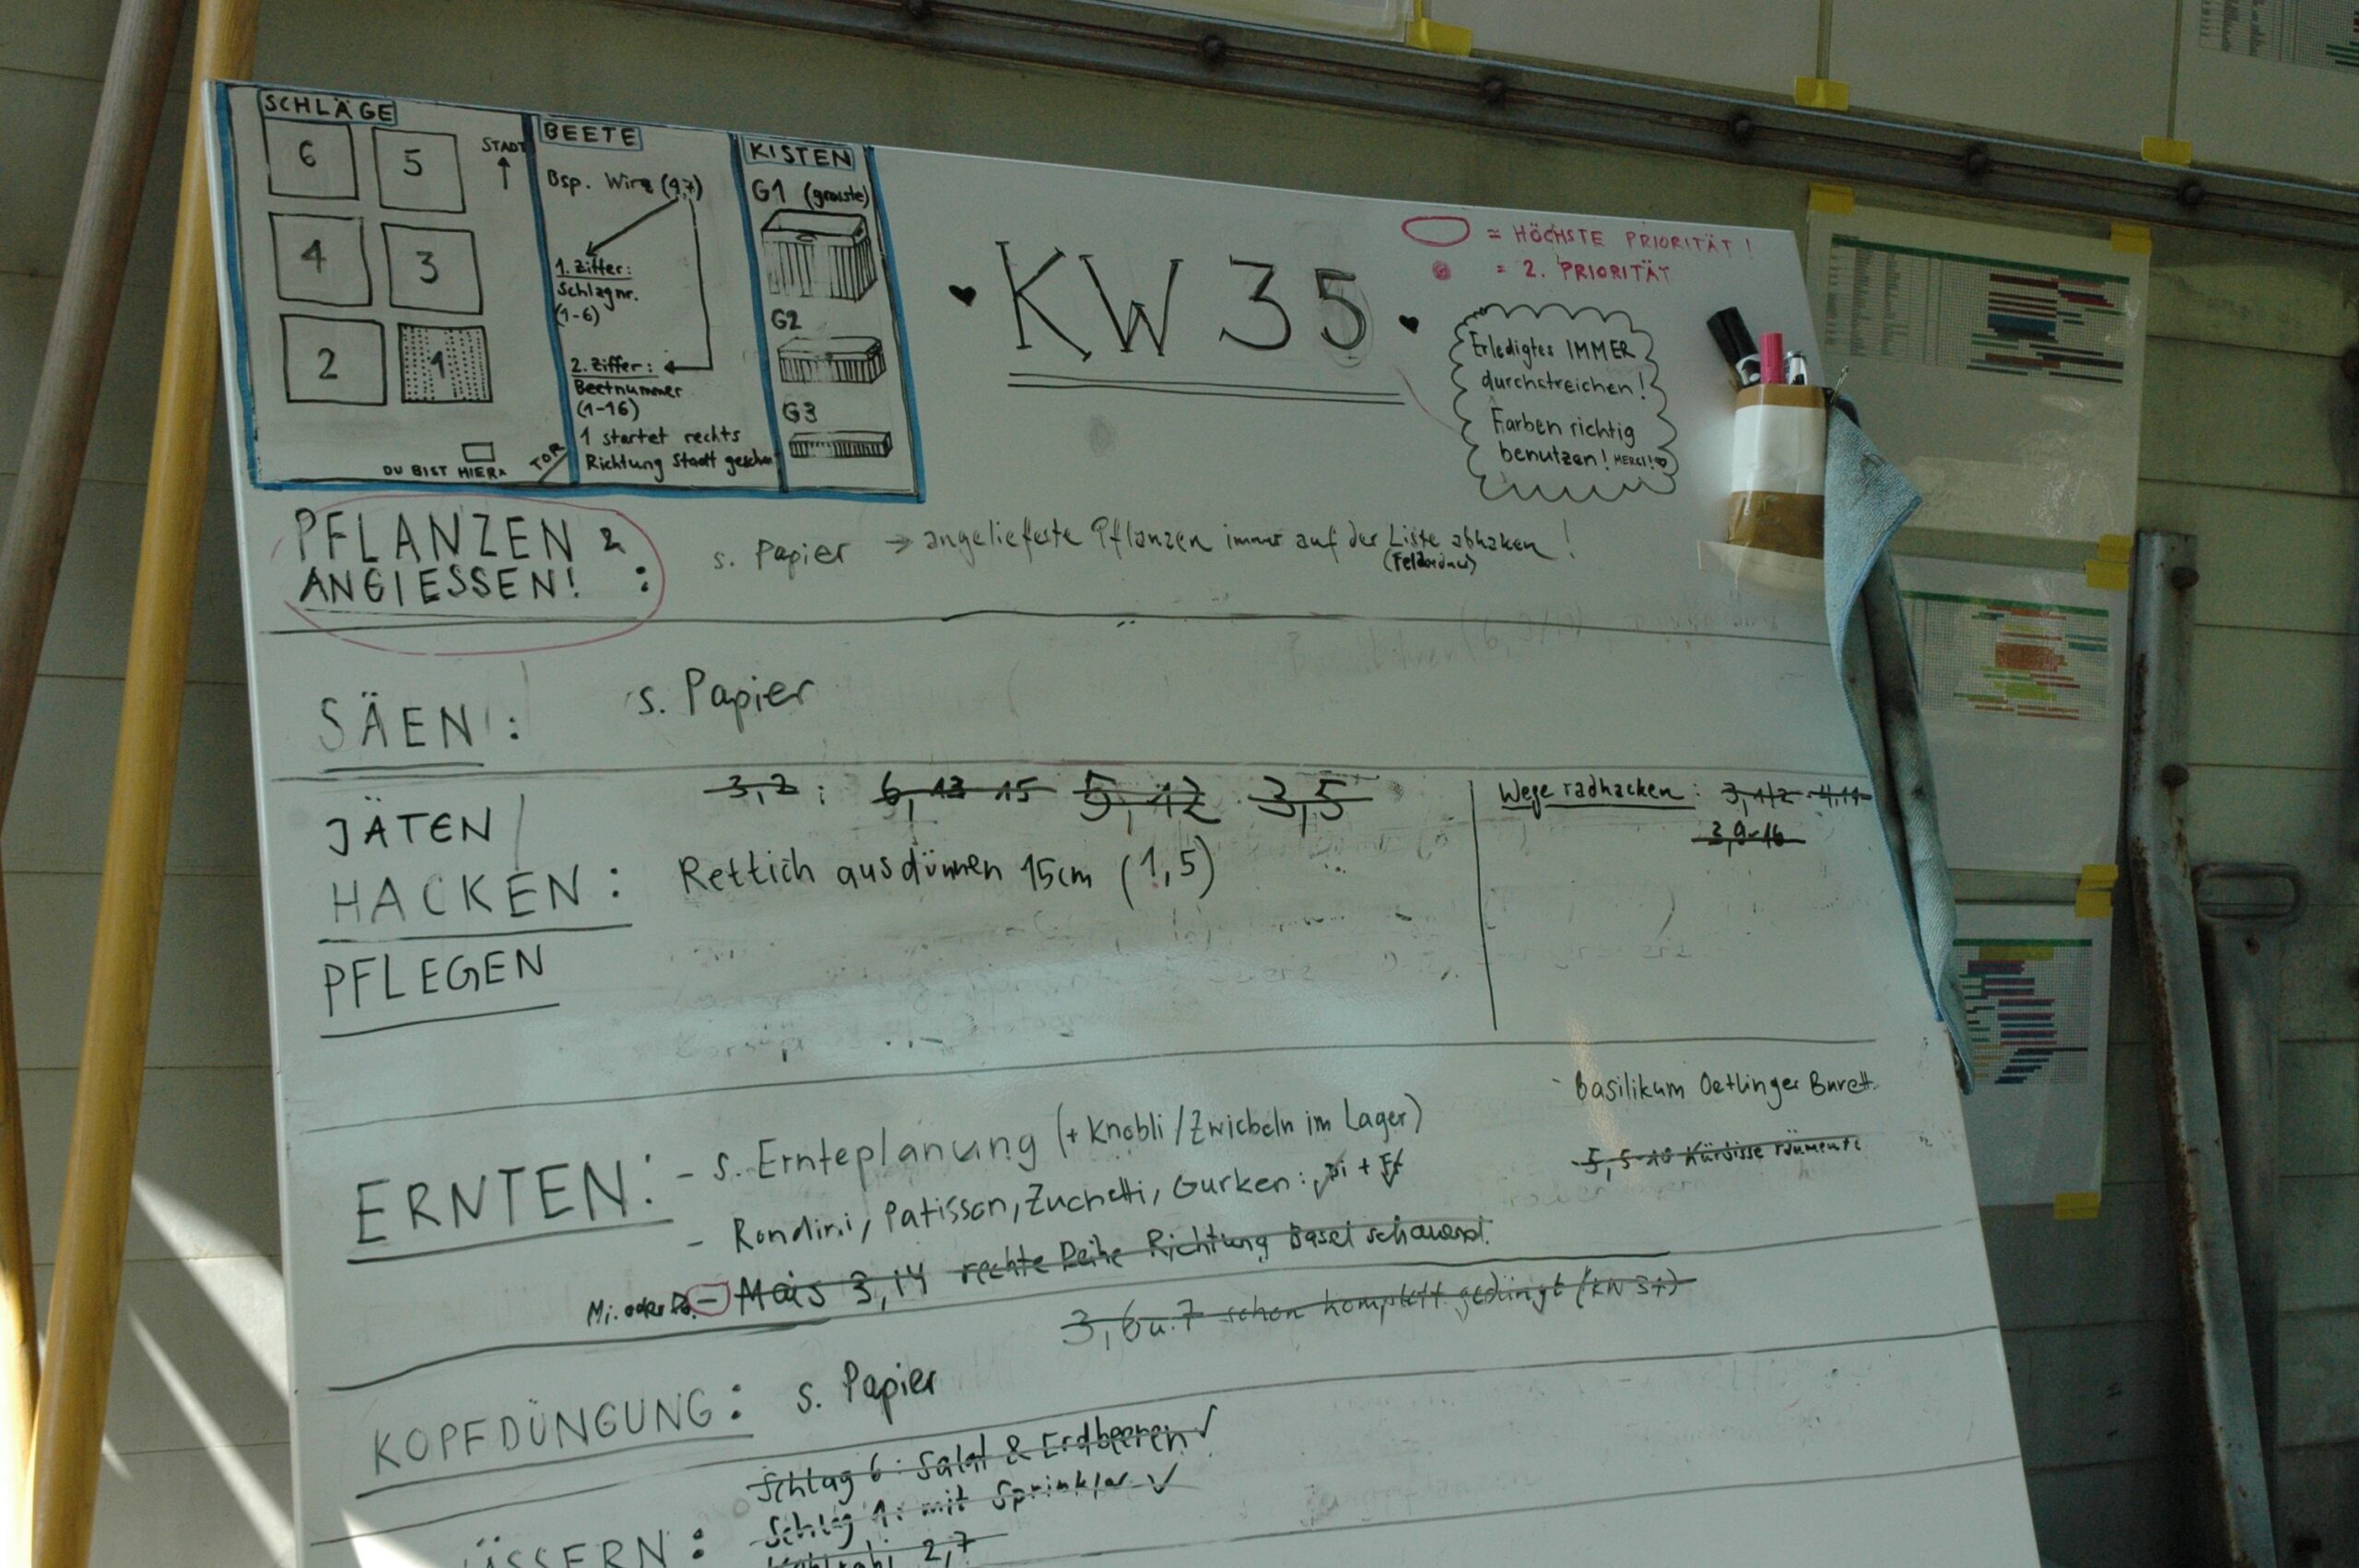 SCHLÄGE
6 5
STADT
4 3
2 1
DU BIST HIER
TOR
BEETE
Bsp. Wirz (4,7)
1. Ziffer:
Schlagnr.
(1-6)
2. Ziffer:
Beetnummer
(1-16)
1 startet rechts
Richtung Stadt
KISTEN
G1 (grösste)
G2
G3
KW 35
= HÖCHSTE PRIORITÄT!
= 2. PRIORITÄT
Erledigtes IMMER
durchstreichen!
Farben richtig
benutzen! MERCI!
PFLANZEN &
ANGIESSEN! :
s. Papier → angelieferte Pflanzen immer auf der Liste abhaken!
SÄEN: s. Papier
JÄTEN
HACKEN:
PFLEGEN
3,2 : 6, 13 15 5, 12 3,5
Rettich ausdünnen 15cm (1,5)
Wege radhacken: 3,1/2 4,11
3,9-16
ERNTEN: - s. Ernteplanung (+ Knobli/Zwiebeln im Lager)
- Rondini, Patisson, Zuchetti, Gurken: Di + Fr
Mi. oder Do. - Mais 3,14 rechte Reihe Richtung Basel schauend.
Basilikum Oetlinger Buvett.
5, 5-10 Kürbisse räumen
3,6 u. 7 schon komplett gedüngt (KW 34)
KOPFDÜNGUNG: s. Papier
Schlag 6: Salat & Erdbeeren ✓
Schlag 1: mit Sprinkler ✓
2,7